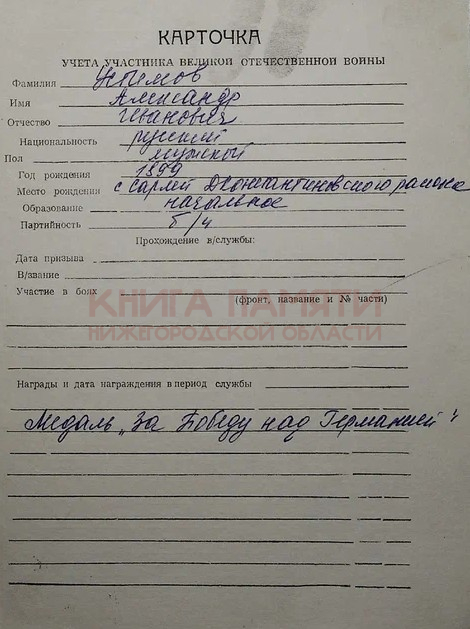 КАРТОЧКА
УЧЕТА УЧАСТНИКА ВЕЛИКОЙ ОТЕЧЕСТВЕННОЙ ВОЙНЫ
Фамилия
Имя Александр
Отчество Иванович
Национальность русский
Пол мужской
Год рождения 1899
Место рождения с Сарлей Дконстантиновского района
Образование начальное
Партийность б/ч
Прохождение в/службы:
Дата призыва
В/звание
Участие в боях
(фронт, название и № части)
КНИГА ПАМЯТИ
НИЖЕГОРОДСКОЙ ОБЛАСТИ
Награды и дата награждения в период службы
Медаль „За Победу над Германией"